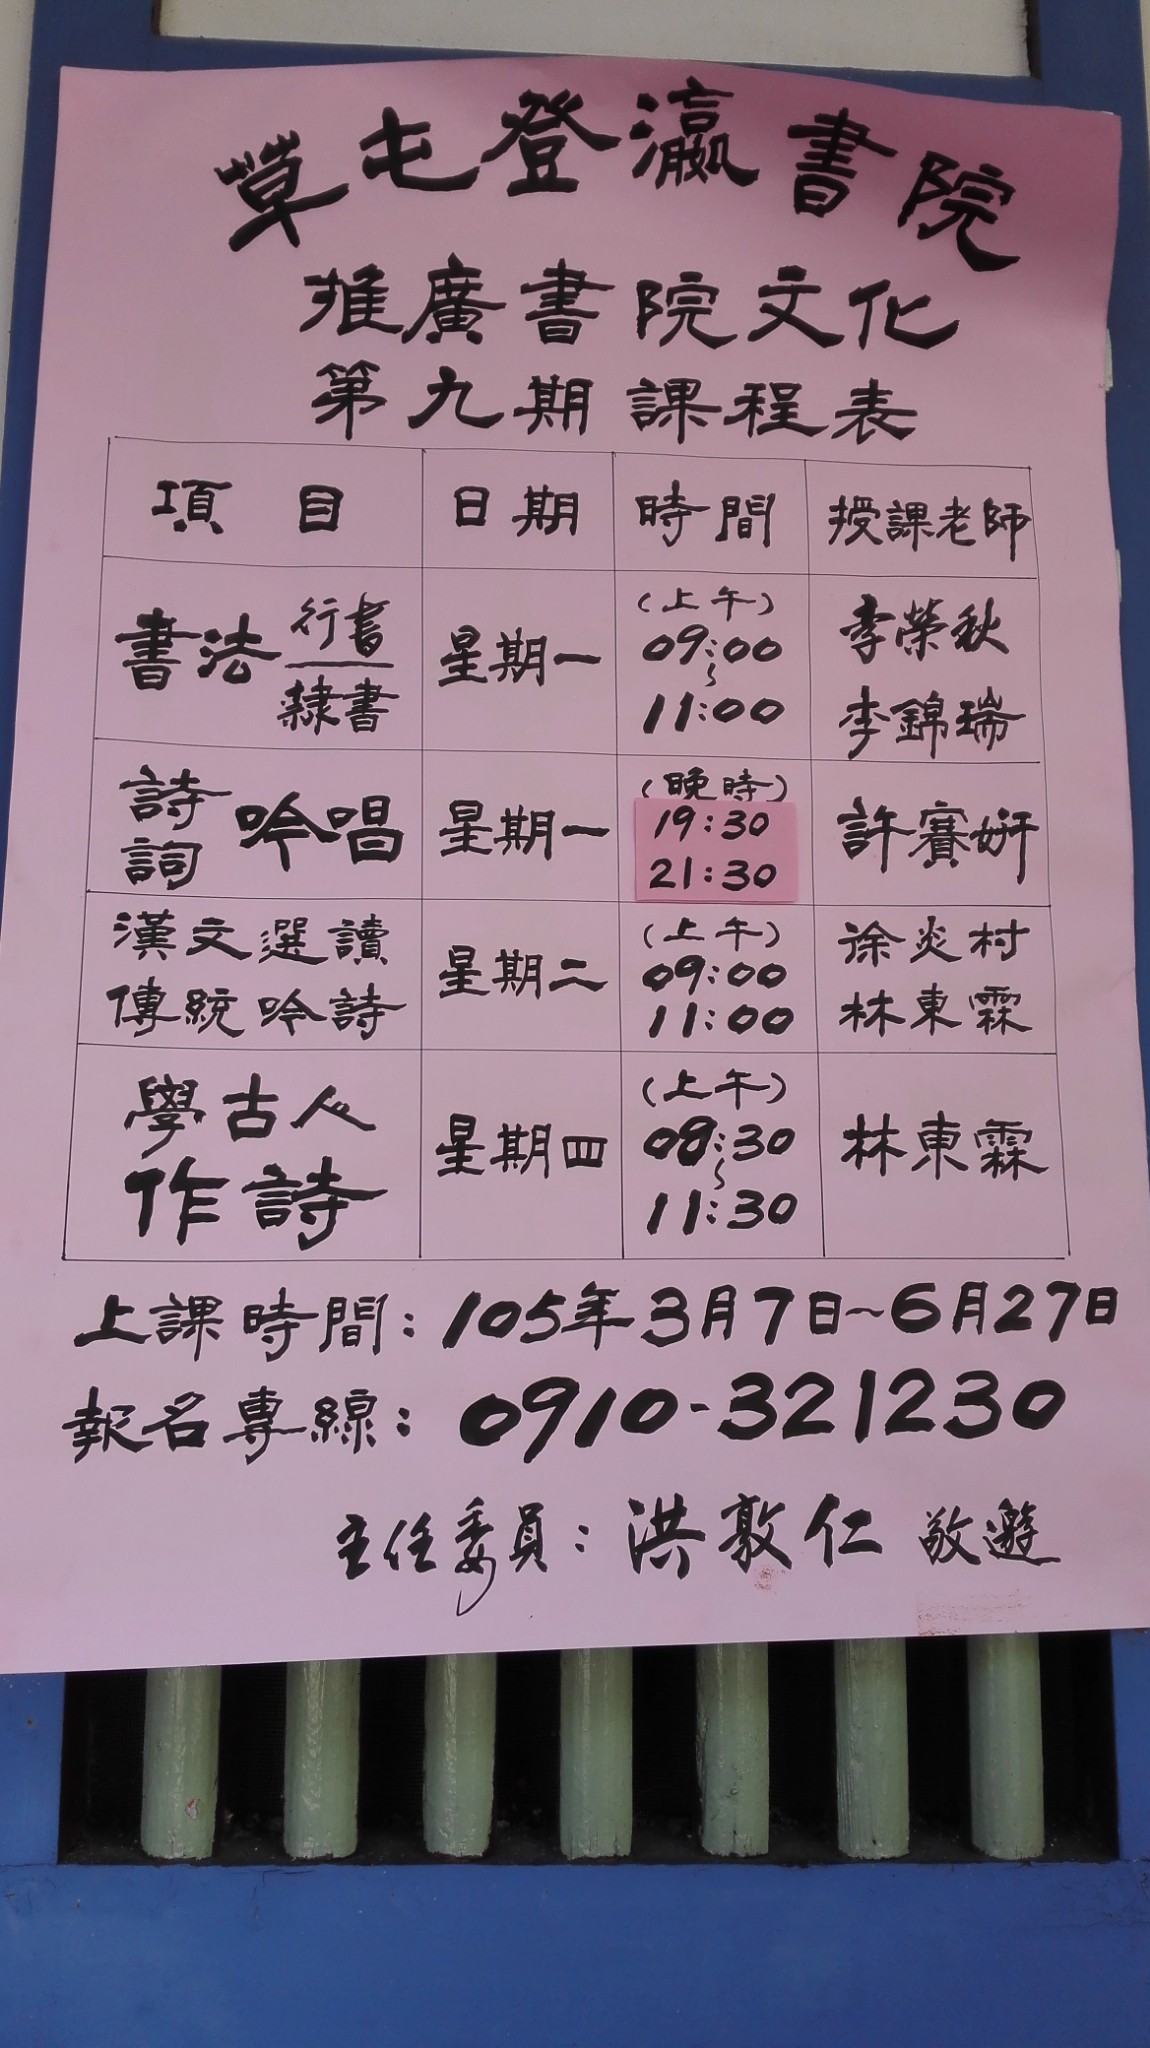 草屯登瀛書院
推廣書院文化
第九期課程表
項目 日期 時間 授課老師
書法 行書 隸書 星期一 (上午) 09:00~11:00 李榮秋 李錦瑞
詩詞吟唱 星期一 (晚時) 19:30 21:30 許賽妍
漢文選讀 傳統吟詩 星期二 (上午) 09:00 11:00 徐炎村 林東霖
學古人作詩 星期四 (上午) 08:30~11:30 林東霖
上課時間:105年3月7日~6月27日
報名專線:0910-321230
主任委員:洪敦仁 敬邀